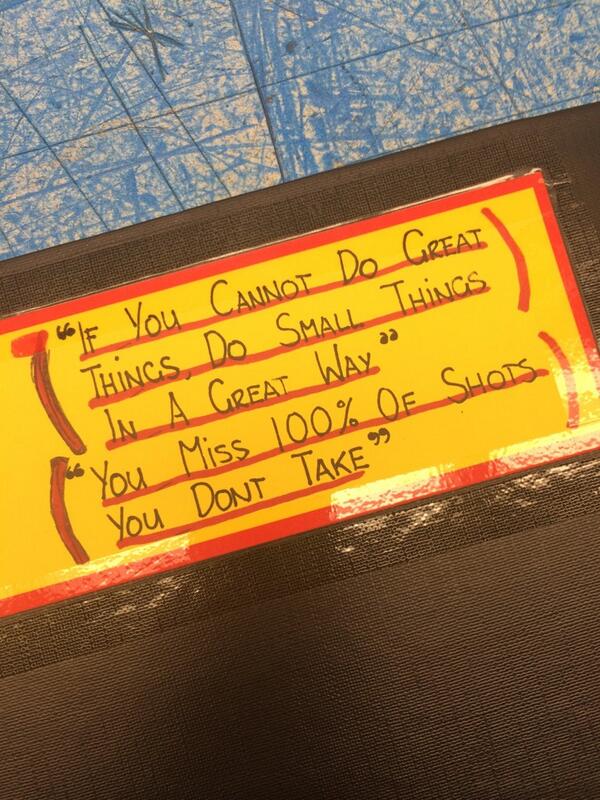 ("If You Cannot Do Great
Things, Do Small Things)
In A Great Way"
("You Miss 100% Of Shots)
You Dont Take"